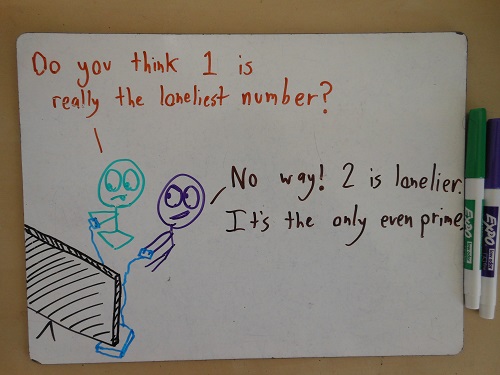 Do you think 1 is
really the loneliest number?
No way! 2 is lonelier.
It's the only even prime.
EXPO
EXPO